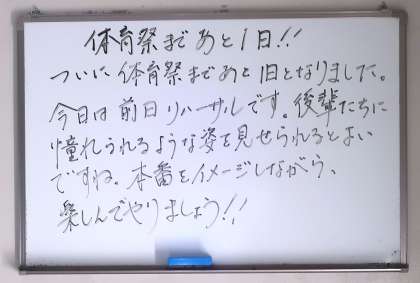 体育祭まで あと1日!!
ついに 体育祭まであと1日となりました。
今日は 前日リハーサルです。後輩たちに
憧れられるような姿を見せられるとよい
ですね。本番をイメージしながら、
楽しんでやりましょう!!